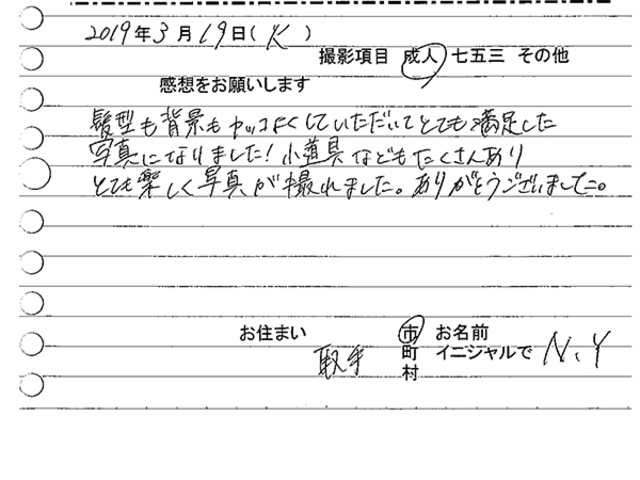 2019年3月19日(火)
撮影項目 成人 七五三 その他
感想をお願いします
髪型も背景もカッコよくしていただいてとても満足した
写真になりました!小道具などもたくさんあり
とても楽しく写真が撮れました。ありがとうございました。
お住まい 取手 市町村
お名前 イニシャルで N.Y